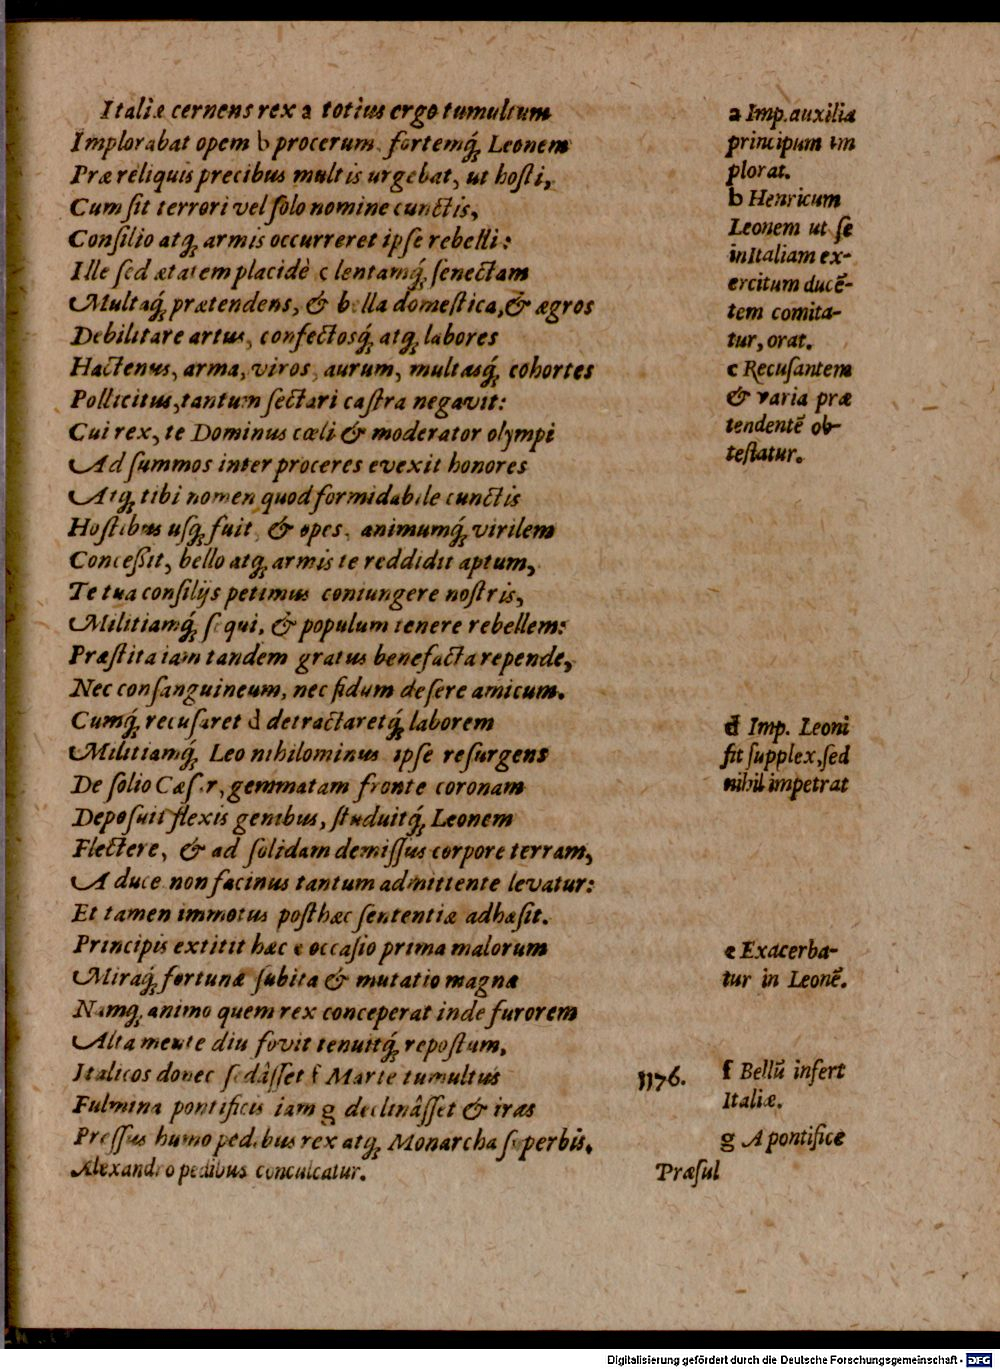 Italiæ cernens rex a totius ergo tumultum
Implorabat opem b procerum, fortemq́; Leonem
Præ reliquis precibus multis urgebat, ut hosti,
Cum sit terrori vel solo nomine cunctis,
Consilio atq; armis occurreret ipse rebelli:
Ille sed ætatem placidè c lentamq́; senectam
Multaq́; prætendens, & bella domestica, & ægros
Debilitare artus, confectosq́; atq; labores
Hactenus, arma, viros, aurum, multasq́; cohortes
Pollicitus, tantum sectari castra negavit:
Cui rex, te Dominus cœli & moderator olympi
Ad summos inter proceres evexit honores
Atq; tibi nomen quod formidabile cunctis
Hostibus usq; fuit, & opes, animumq́; virilem
Conceßit, bello atq; armis te reddidit aptum,
Te tua consilijs petimus coniungere nostris,
Militiamq́; sequi, & populum tenere rebellem:
Præstita iam tandem gratus benefacta repende,
Nec consanguineum, nec fidum desere amicum.
Cumq́; recusaret d detractaretq́; laborem
Militiamq́; Leo nihilominus ipse resurgens
De solio Cæsar, gemmatam fronte coronam
Deposuit flexis genibus, studuitq́; Leonem
Flectere, & ad solidam demissus corpore terram,
A duce non facinus tantum admittente levatur:
Et tamen immotus posthæc sententiæ adhæsit.
Principis extitit hæc e occasio prima malorum
Miraq́; fortunæ subita & mutatio magnæ
Namq; animo quem rex conceperat inde furorem
Alta mente diu fovit tenuitq́; repostum,
Italicos donec sedâsset f Marte tumultus
Fulmina pontificis iam g declinâsset & iras
Pressus humo pedibus rex atq; Monarcha superbis.
Alexandro pedibus conculcatur.
Præsul
a Imp. auxilia
principum im
plorat.
b Henricum
Leonem ut se
in Italiam ex-
ercitum ducē-
tem comita-
tur, orat.
c Recusantem
& varia præ
tendentē ob-
testatur.
d Imp. Leoni
fit supplex, sed
nihil impetrat
e Exacerba-
tur in Leonē.
1176.
f Bellū infert
Italiæ.
g A pontifice
Digitalisierung gefördert durch die Deutsche Forschungsgemeinschaft - DFG